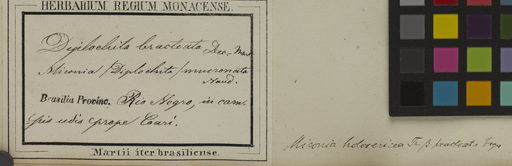 HERBARIUM REGIUM MONACENSE.
Diplochita bracteata Dec. Mart.
Miconia (Diplochita) mucronata
Naud.
Brasilia Provinc. Rio Negro, in cam-
pis udis prope Coari.
Martii iter brasiliense.
Miconia holosericea Tr. β bracteata Trna